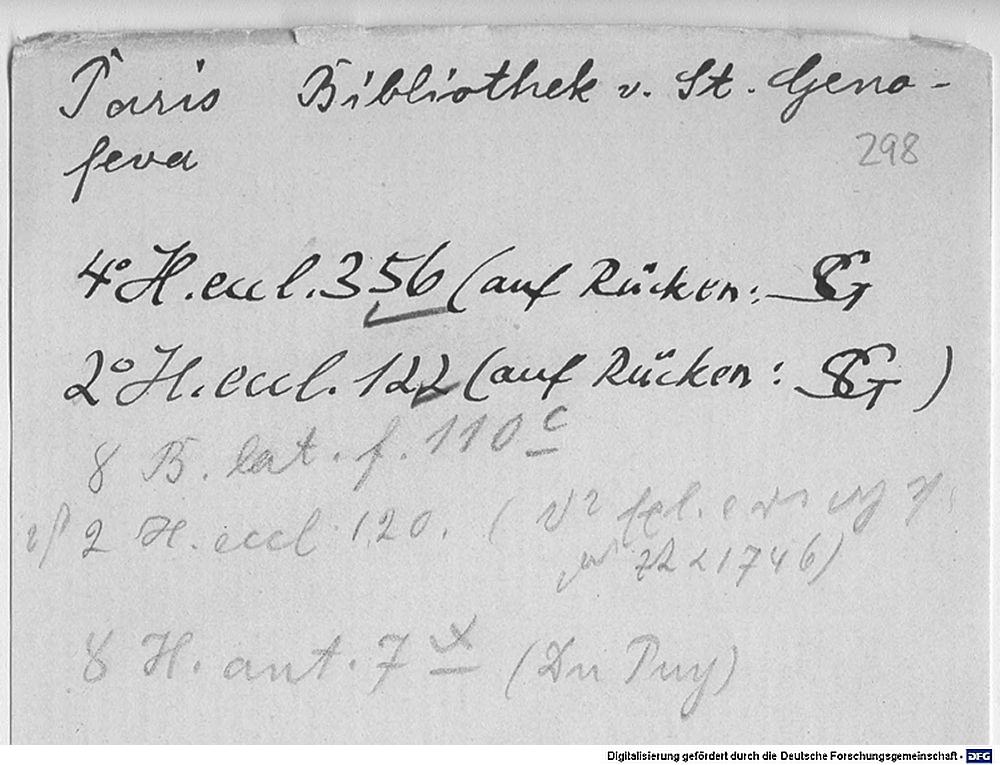 Paris Bibliothek v. St. Geno-
feva
298
4° H. eccl. 356 (auf Rücken: SG
2° H. eccl. 122 (auf Rücken: SG)
8 B. lat. f. 110 c
2 H. eccl 120. (
1746)
8 H. ant. 7 x (Du Puy)
Digitalisierung gefördert durch die Deutsche Forschungsgemeinschaft - DFG